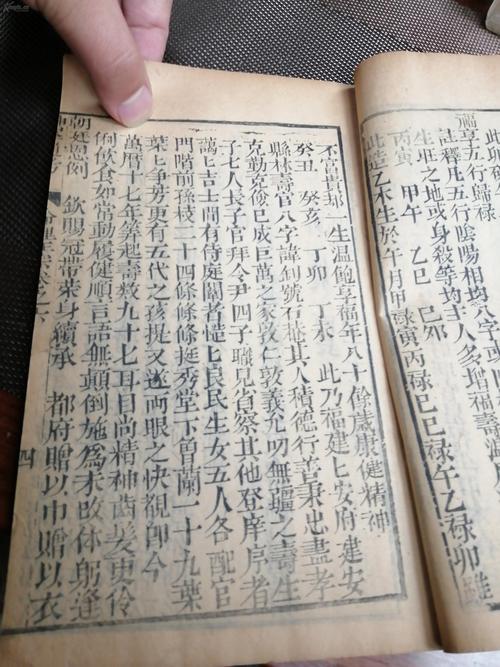 福享五行歸祿
註釋凡五行陰陽相均
生旺之地或身殺等均主人多增福壽
丙寅 甲午 乙巳 己卯
此造乙木生於午月甲祿寅丙祿巳巳祿午乙祿卯雖
不富貴耶一生温飽享福年八十餘歲康健精神
癸丑 癸亥 丁卯 丁未 此乃福建匕安府建安
縣林壽官八字諱釗號石菴其人積德行善秉忠盡孝
克勤克儉已成巨萬之家敦仁敦義允叨無疆之壽生
子七人長子官拜令尹四子職見省祭其他登庠序者
萬匕吉士間有侍庭闈者愷匕良民生女五人各配官
門階前孫枝二十四條條條挺秀堂下角蘭二十九葉
葉上爭芳更有五代之孩提又遂両眼之快覩卽今
萬曆十七年筭起壽教九十七耳目尚精神齒髮更伶
俐飲食如常動履健順言語無顛倒施為未改体躬逢
朝廷恩例 欽賜冠帶荣身續承 都府贈以巾贈以衣
四